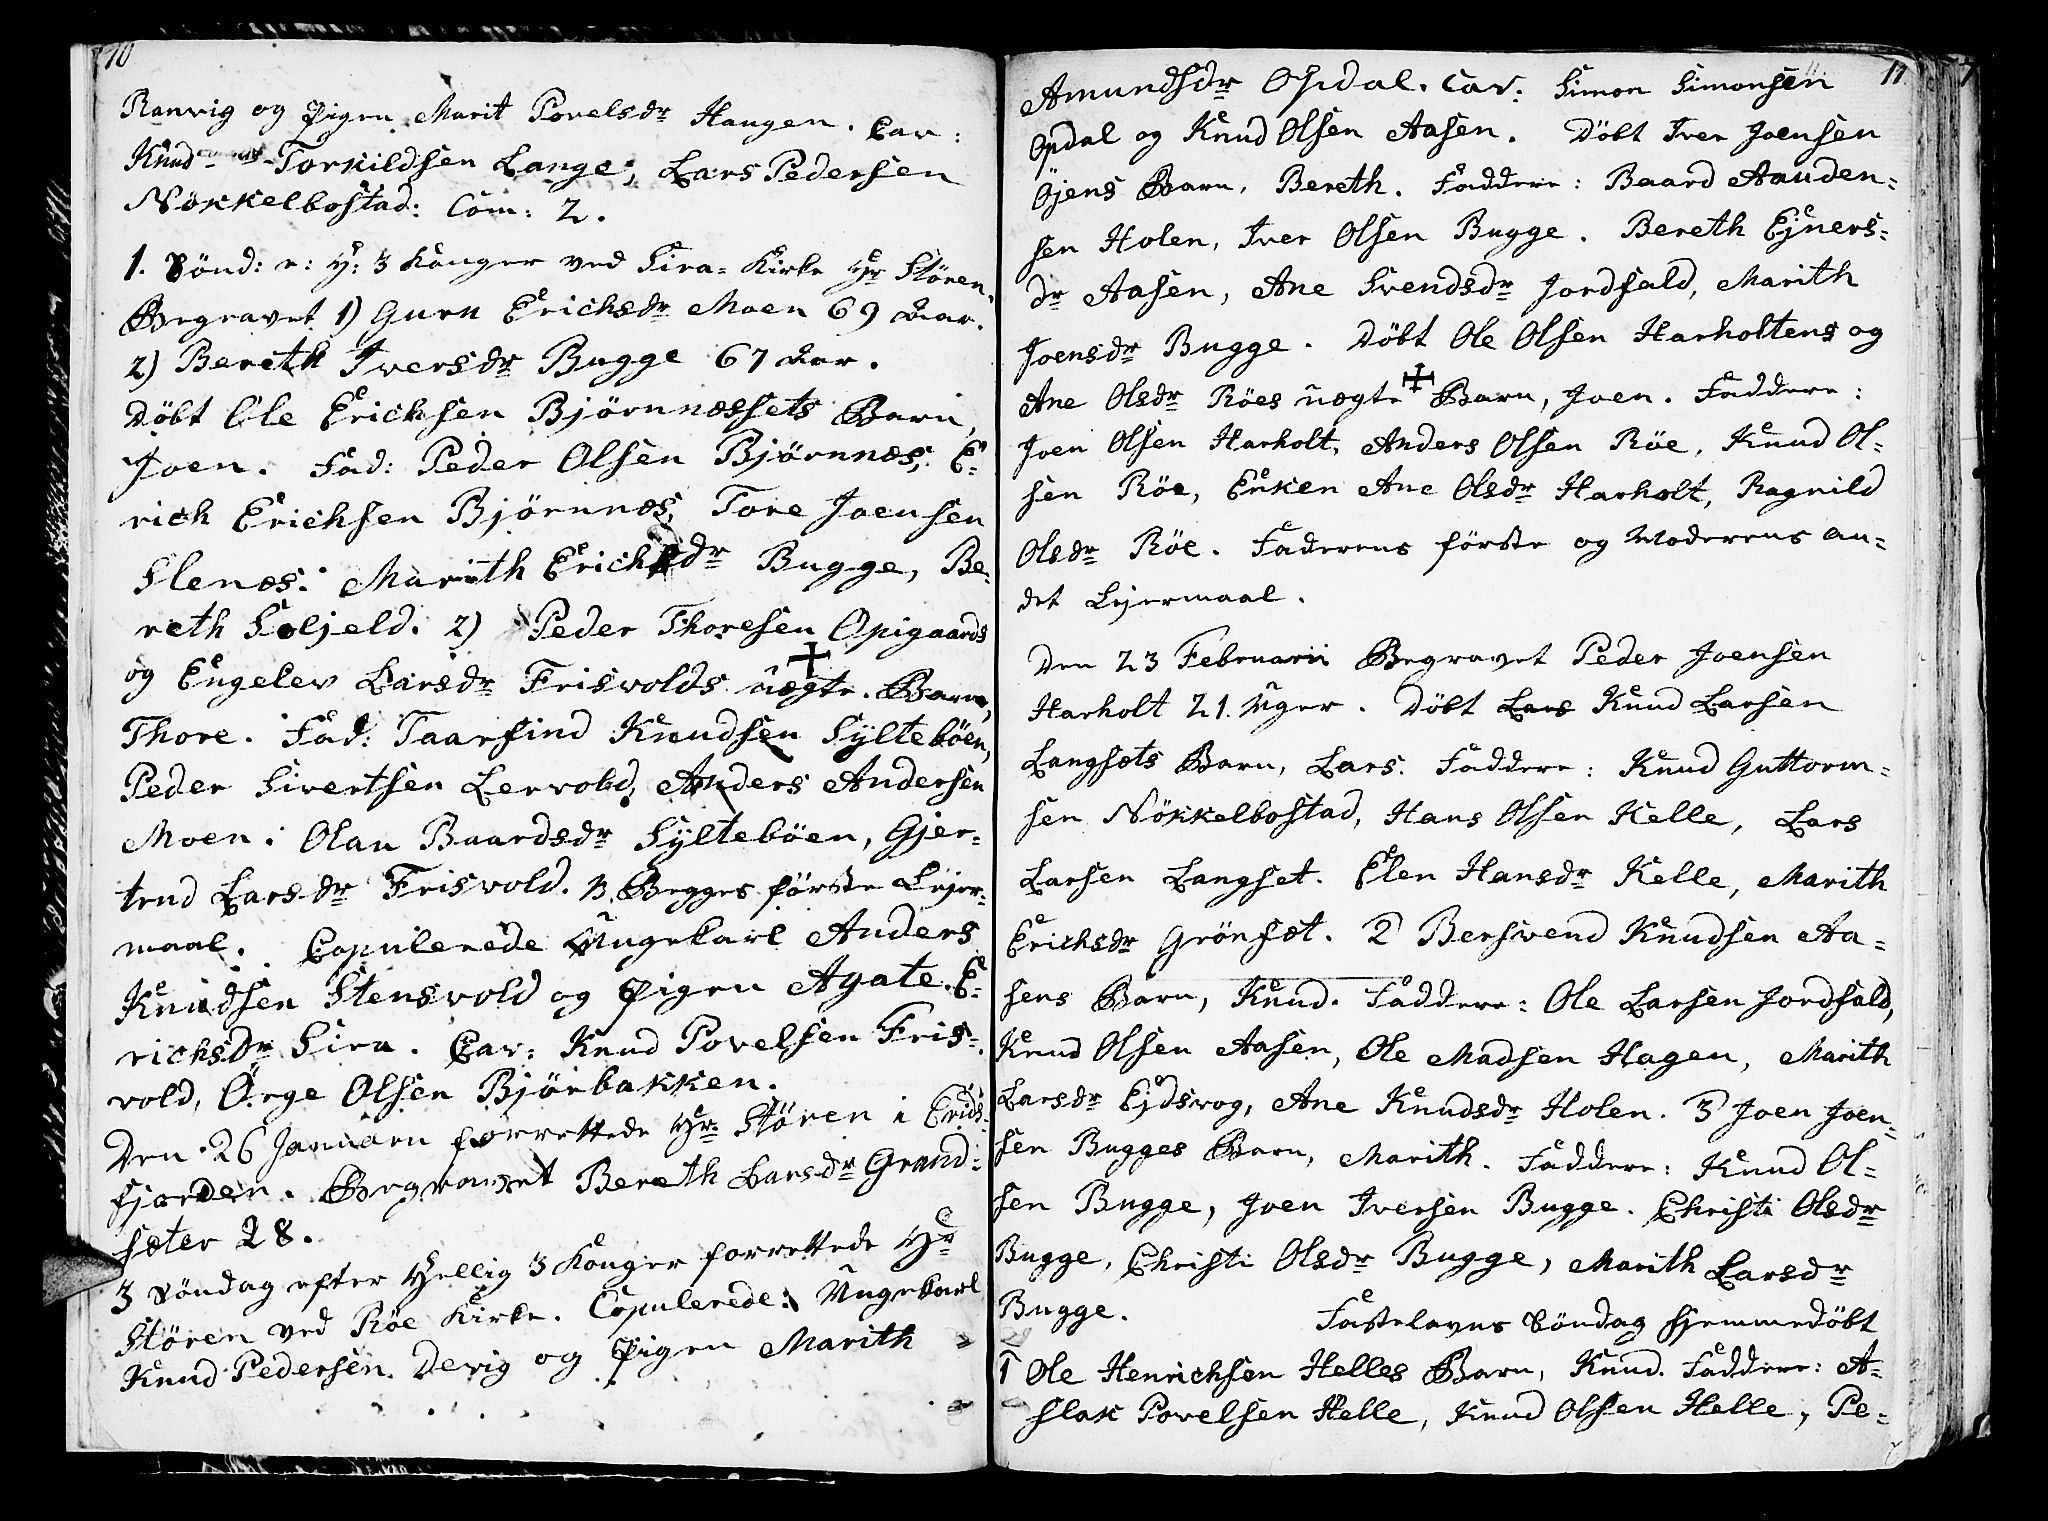 10
Ranvig og Pigen Marit Povelsdr Haugen. Cav:
Knud Torkildsen Lange, Lars Pedersen
Nökkelbostad: Com: 2.
1. Sönd: e: H: 3 Konger ved Sira- Kirke Hr Stören.
Begravet 1) Guru Erichsdr Moen 69 Aar.
2) Bereth Iversdr Bugge 67 Aar.
Döbt Ole Erichsen Björnnæssets Barn,
Joen. Fad: Peder Olsen Björnnæs, E-
rich Erichsen Björnnæs, Tore Joensen
Slenæs: Marith Erichsdr Bugge, Be-
reth Soljeld. 2) Peder Thoresen Opigaards
og Engelev Larsdr Frisvolds uægte Barn,
Thore. Fad: Taarfind Knudsen Sylteböen,
Peder Sivertsen Lervold, Anders Andersen
Moen: Olau Baardsdr Sylteböen, Gjer-
trud Larsdr Frisvold. Begges förste Lejer-
maal. Copulerede Ungekarl Anders
Knudsen Stensvold og Pigen Agate E-
richsdr Sira. Cav: Knud Povelsen Fris-
vold, Örge Olsen Björbakken.
Den 26 Januarii forrettede Hr Stören i Erids-
fjorden. Begravet Bereth Larsdr Grand-
sæter 28.
3 Söndag efter Hellig 3 Konger forrettede Hr
Stören ved Röe Kirke. Copulerede: Ungekarl
Knud Pedersen Devig og Pigen Marith
11
Amundsdr Opdal. Cav: Simon Simonsen
Opdal og Knud Olsen Aasen. Döbt Iver Joensen
Öjens Barn, Bereth. Faddere: Baard Aanden-
sen Holen, Iver Olsen Bugge. Bereth Ejners-
dr Aasen, Ane Svendsdr Jordfald, Marith
Joensdr Bugge. Döbt Ole Olsen Harholtens og
Ane Olsdr Röes uægte Barn, Joen. Faddere:
Joen Olsen Harholt, Anders Olsen Röe, Knud Ol-
sen Röe, Enken Ane Olsdr Harholt, Ragnild
Olsdr Röe. Faderens förste og Moderens an-
det Lejermaal.
Den 23 Februarii Begravet Peder Joensen
Harholt 21. Uger. Döbt Lars Knud Larsen
Langsæts Barn, Lars. Faddere: Knud Guttorm-
sen Nökkelbostad, Hans Olsen Kelle, Lars
Larsen Langset. Elen Hansdr Kelle, Marith
Erichsdr Grönsæt. 2 Bersvend Knudsen Aa-
sens Barn, Knud. Faddere: Ole Larsen Jordfald,
Knud Olsen Aasen, Ole Madsen Hagen, Marith
Larsdr Ejdsvog, Ane Knudsdr Holen. 3 Joen Joen-
sen Bugges Barn, Marith. Faddere: Knud Ol-
sen Bugge, Joen Iversen Bugge. Christi Olsdr
Bugge, Christi Olsdr Bugge, Marith Larsdr
Bugge.
Fastelavns Söndag hjemmedöbt
1 Ole Henrichsen Helles Barn, Knud. Faddere: A-
slak Povelsen Helle, Knud Olsen Helle, Pe-